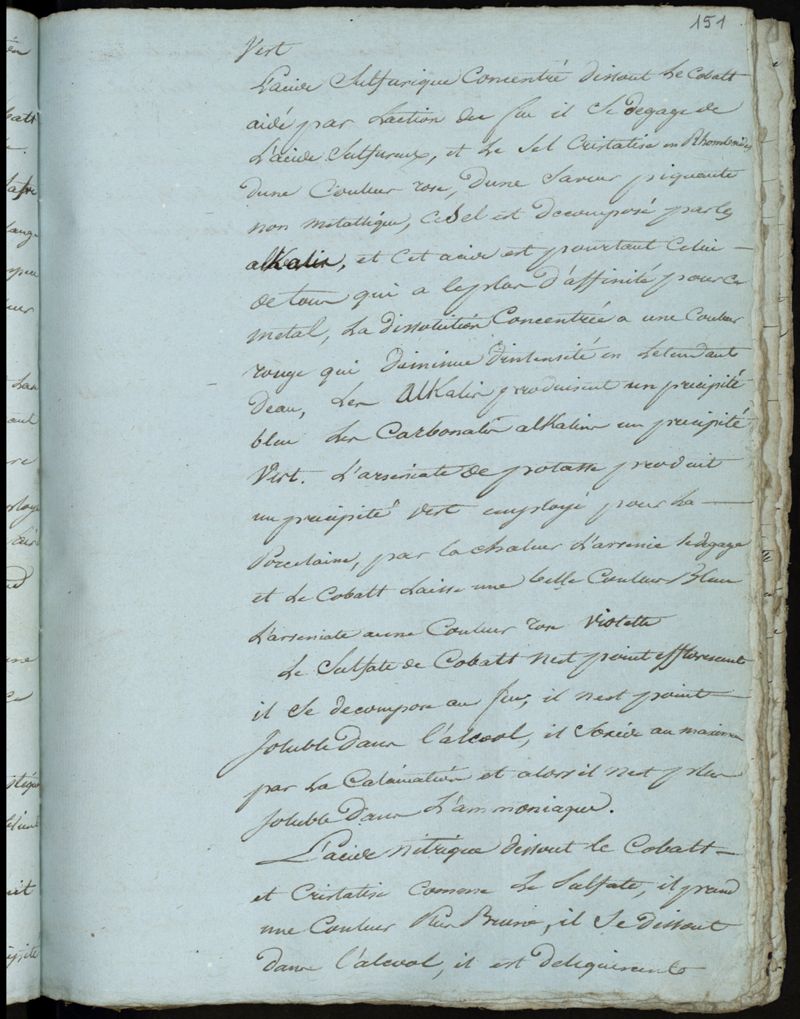 151
Vert
L'acide Sulfurique Concentré dissout Le Cobalt
aidé par Laction du feu il Se degage de
L'acide Sulfureux, et Le Sel Cristalise en Rhomboides
dune Couleur rose, dune Saveur piquante
non metallique, Ce Sel est Decomposé par les
alkalis, et Cet acide est pourtant Celui
de tous qui a le plus d'affinité pour Ce
metal, La dissolution Concentrée a une Couleur
rouge qui diminue d'intensité en Letendant
Deau, Les alkalis produisent un precipité
bleu Les Carbonates alkalins un precipité
Vert. L'arseniate de potasse produit
un precipité Vert employé pour La
Porcelaine, par la chaleur L'arsenic Se degage
et Le Cobalt Laisse une belle Couleur Bleue
L'arseniate a une Couleur rose Violette
Le Sulfate de Cobalt nest point efflorescent
il Se decompose au feu, il nest point
Soluble Dans l'alcool, il Soxide au maximum
par La Calcination et alors il nest plus
Soluble Dans L'ammoniaque.
L'acide nitrique dissout le Cobalt
et Cristalise Comme Le Sulfate, il prend
une Couleur Plus Brune, il Se dissout
dans l'alcool, il est deliquescent